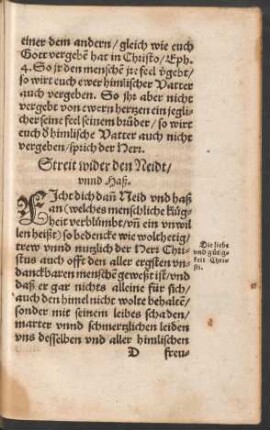 einer dem andern/ gleich wie euch
Gott vergebē hat in Christo/ Eph.
4. So jr den menschē jre feel v̄gebt/
so wirt euch ewer himlischer Vatter
auch vergeben. So jhr aber nicht
vergebt von ewern hertzen ein jegli-
cher seine feel seinem brůder/ so wirt
euch d̄ himlische Vatter auch nicht
vergeben/ sprich der Herr.
Streit wider den Neidt/
vnnd Haß.
FIcht dich dañ Neid vnd haß
an (welches menschliche Klůg-
heit verblümbt/ vñ ein vnwil
len heißt) so bedencke wie wolthetig/
trew vnnd nutzlich der Herr Chri
stus auch offt den aller ergsten vn-
danckbaren menschē geweßt ist/ vnd
daß er gar nichts alleine für sich/
auch den himel nicht wolte behaltē/
sonder mit seinem leibs schaden/
marter vnnd schmertzlichen leiden
vns desselben vnd aller himlischen
Die liebe
vnd gütig-
keit Chri-
sti.
D freu-